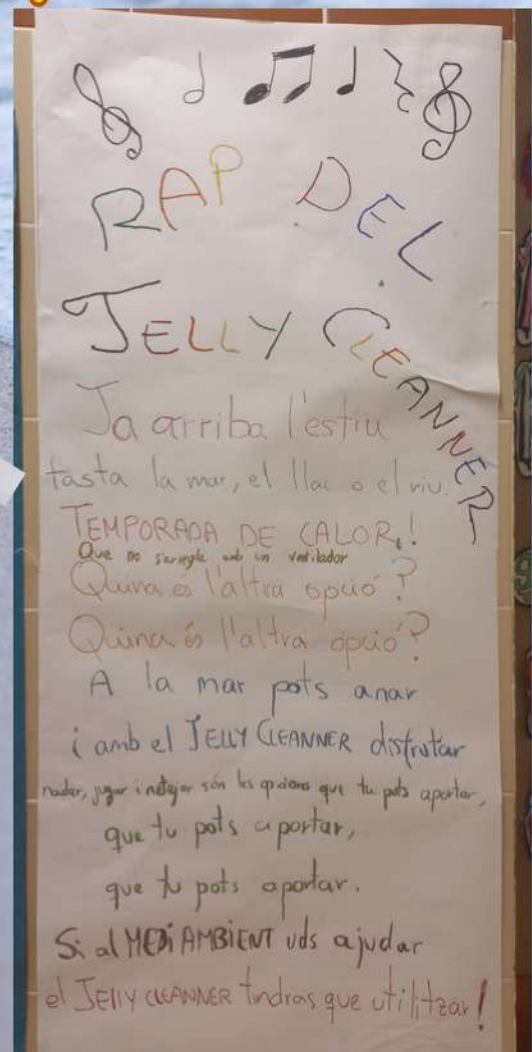 RAP DEL
JELLY CLEANNER
Ja arriba l'estiu
tasta la mar, el llac o el riu.
TEMPORADA DE CALOR,!
Que no s'arregla amb un ventilador
Quina és l'altra opció?
Quina és l'altra opció?
A la mar pots anar
i amb el JELLY CLEANNER disfrutar
nadar, jugar i netejar són les opcions que tu pots aportar,
que tu pots aportar,
que tu pots aportar.
Si al MEDI AMBIENT vols ajudar
el JELLY CLEANNER tindras que utilitzar!